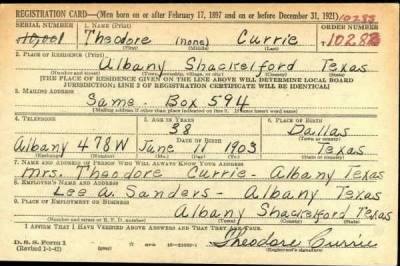 REGISTRATION CARD—(Men born on or after February 17, 1897 and on or before December 31, 1921)
SERIAL NUMBER 1. NAME (Print) ORDER NUMBER
Theodore (none) Currie 10288
(First) (Middle) (Last)
2. PLACE OF RESIDENCE (Print)
Albany Shackelford Texas
(Number and street) (Town, township, village, or city) (County) (State)
[THE PLACE OF RESIDENCE GIVEN ON THE LINE ABOVE WILL DETERMINE LOCAL BOARD
JURISDICTION; LINE 2 OF REGISTRATION CERTIFICATE WILL BE IDENTICAL]
3. MAILING ADDRESS
Same - Box 594
[Mailing address if other than place indicated on line 2. If same insert word same]
4. TELEPHONE 5. AGE IN YEARS 6. PLACE OF BIRTH
38 Dallas
DATE OF BIRTH (Town or county)
Albany 478W June 11 1903 Texas
(Exchange) (Number) (Mo.) (Day) (Yr.) (State or country)
7. NAME AND ADDRESS OF PERSON WHO WILL ALWAYS KNOW YOUR ADDRESS
Mrs. Theodore Currie - Albany Texas
8. EMPLOYER'S NAME AND ADDRESS
Lee A. Sanders - Albany Texas
9. PLACE OF EMPLOYMENT OR BUSINESS
Albany Shackelford Texas
(Number and street or R. F. D. number) (Town) (County) (State)
I AFFIRM THAT I HAVE VERIFIED ABOVE ANSWERS AND THAT THEY ARE TRUE.
D. S. S. Form 1
(Revised 1-1-42) Theodore Currie
(Registrant's signature)